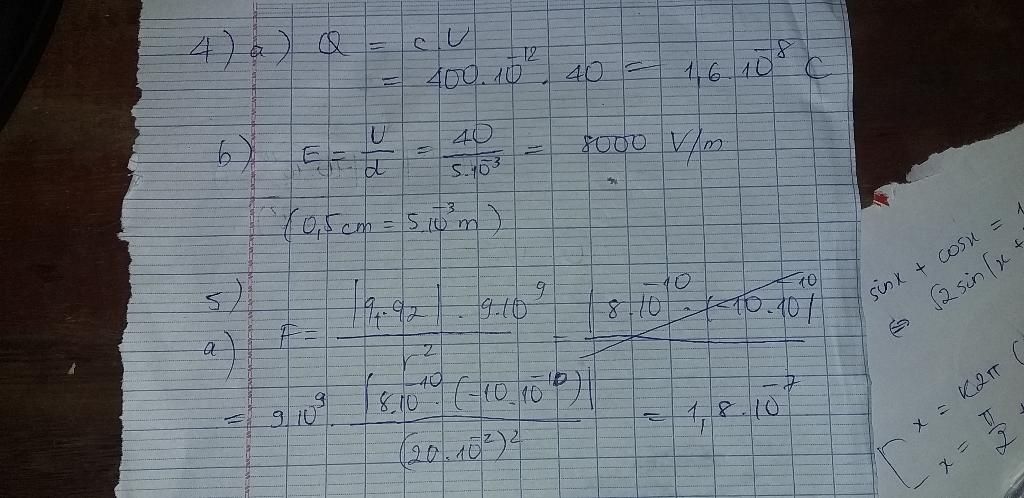 4) a) Q = c.U
= 400.10⁻¹² . 40 = 1,6.10⁻⁸ C
b) E = U/d = 40/5.10⁻³ = 8000 V/m
(0,5cm = 5.10⁻³m)
5)
a) F = |q₁.q₂| . 9.10⁹ / r² = |8.10⁻¹⁰ . (-10.10⁻¹⁰|
= 9.10⁹ . |8.10⁻¹⁰ . (-10.10⁻¹⁰)| / (20.10⁻²)² = 1,8.10⁻⁷
sinx + cosx = 1
⇔ √2 sin(x +
[ x = k2π
x = π/2